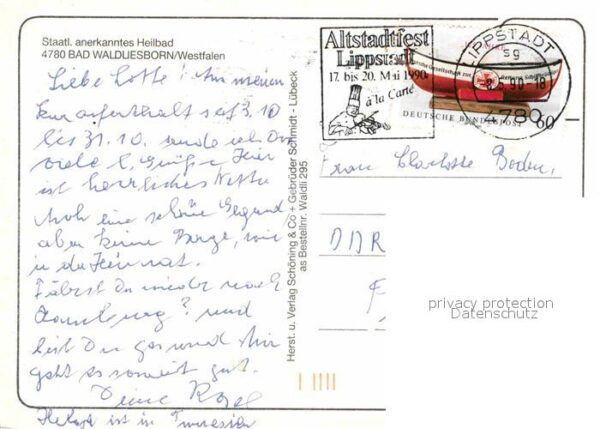 Staatl. anerkanntes Heilbad
4780 BAD WALDLIESBORN/Westfalen
Liebe Lotte! An meinem
Kuraufenthalt seit 3.10
bis 31.10. sende ich Dir
viele l. Grüße Hier
ist herrliches Wetter
eine schöne Gegend
aber keine Berge, wie
in der Heimat.
Fährst Du wieder nach
? und
bist Du gesund Mir
geht es soweit gut.
Deine
ist in Tunesien
Herst. u. Verlag Schöning & Co + Gebrüder Schmidt - Lübeck
as Bestellnr. Waldli 295
Altstadtfest
Lippstadt
17. bis 20. Mai 1990
à la Carte
LIPPSTADT
sg
-8.5.90-18
4780
DEUTSCHE BUNDESPOST
60
Frau Charlotte Boden,
DDR
privacy protection
Datenschutz